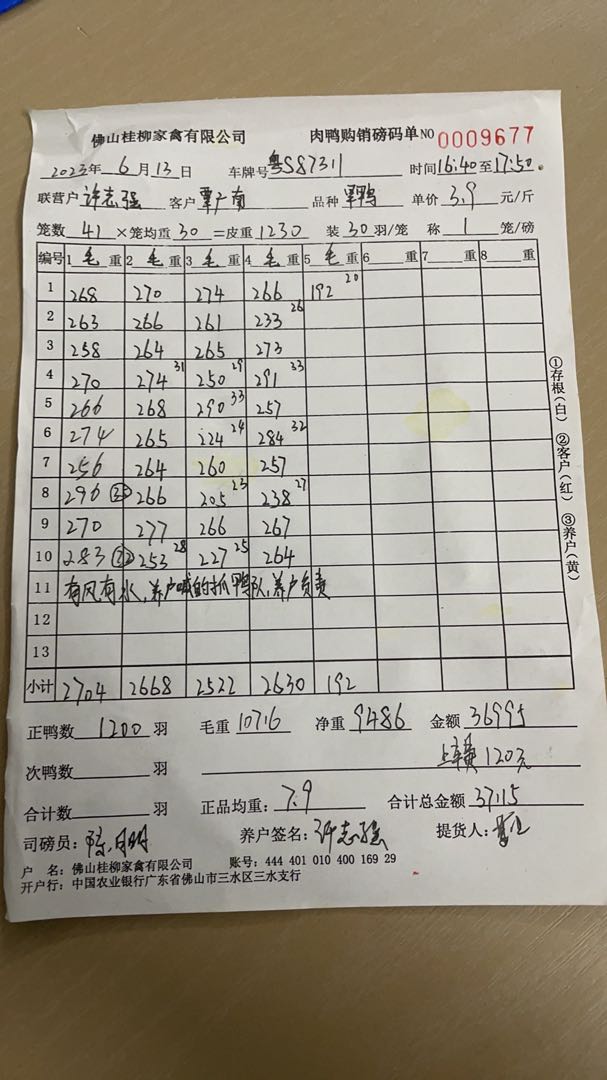 佛山桂柳家禽有限公司 肉鸭购销磅码单NO 0009677
2023年 6月 13日 车牌号 粤S87311 时间16:40至17:50
联营户 许志强 客户 覃广南 品种 单价 3.9 元/斤
笼数 41 ×笼均重 30 =皮重 1230 装 30 羽/笼 称 1 笼/磅
编号 1 毛 重 2 毛 重 3 毛 重 4 毛 重 5 毛 重 6 重 7 重 8 重
1 268 270 274 266 192 20
2 263 266 261 233 26
3 258 264 265 273
4 270 274 31 250 29 291 33
5 266 268 290 33 257
6 274 265 224 24 284 32
7 256 264 260 257
8 296 266 205 23 238 27
9 270 277 266 267
10 283 253 28 227 25 264
11 有风有水,养户喊的抓鸭队,养户负责
12
13
小计 2704 2668 2522 2630 192
正鸭数 1200 羽 毛重 10716 净重 9486 金额 36995
次鸭数 羽 上车费 120元
合计数 羽 正品均重: 7.9 合计总金额 37115
司磅员: 养户签名: 许志强 提货人:
户 名: 佛山桂柳家禽有限公司 账号: 444 401 010 400 169 29
开户行: 中国农业银行广东省佛山市三水区三水支行
①存根(白) ②客户(红) ③养户(黄)